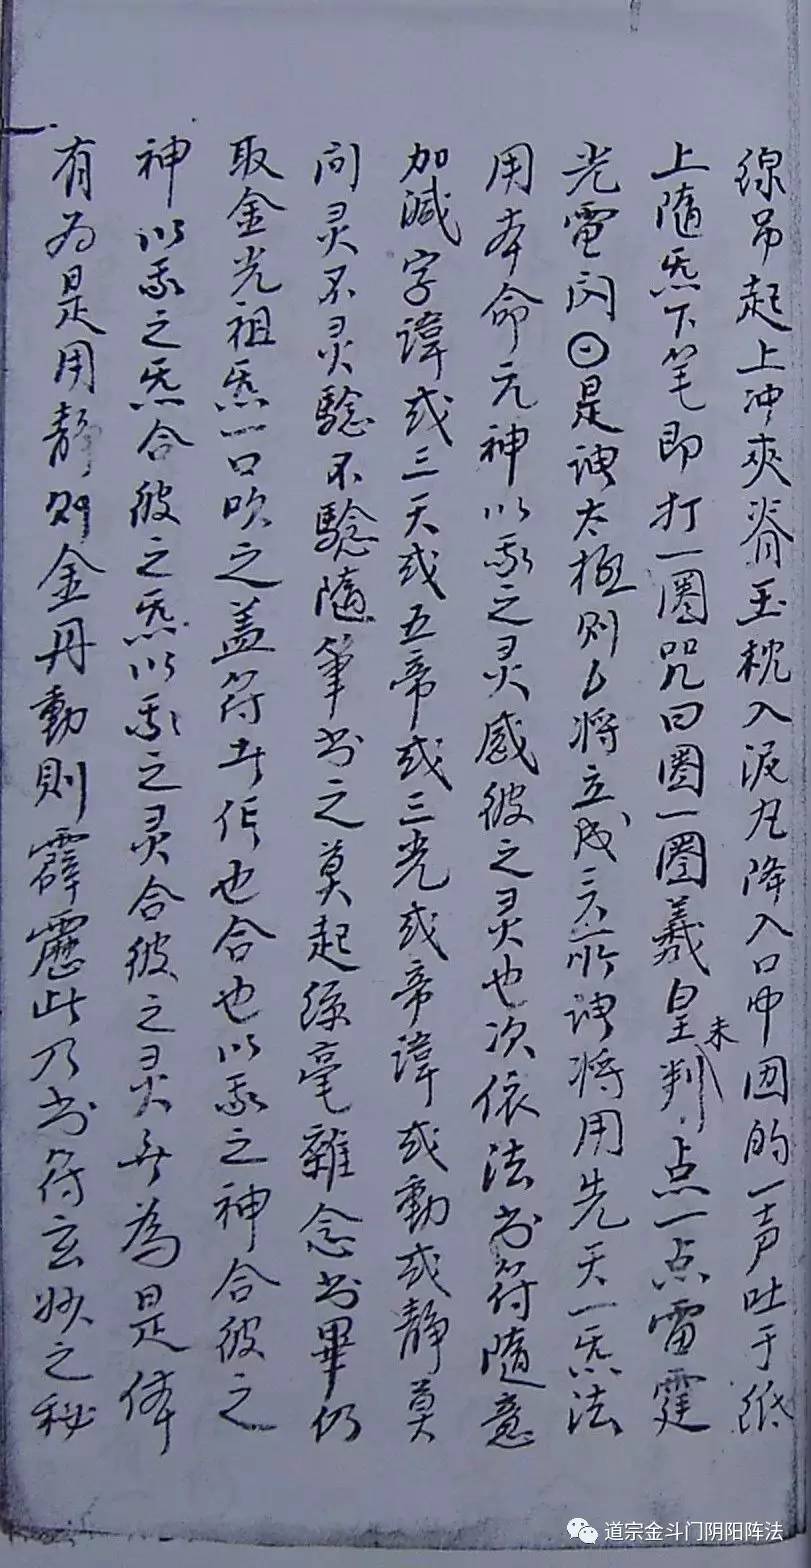 线吊起上冲夾脊玉枕入泥丸降入口中囫的一声吐于纸
上隨炁下笔即打一圈咒曰圈一圈羲皇未判点一点雷霆
光電闪⊙是谓太極则将立成所谓将用先天一炁法
用本命元神以我之灵感彼之灵也次依法书符隨意
加减字諱或三天或五帝或三光或帝諱或動或静莫
问灵不灵驗不驗隨筆书之莫起絲毫雜念书畢仍
取金光祖炁一口吹之盖符者也合也以我之神合彼之
神以我之炁合彼之炁以我之灵合彼之灵无為是体
有为是用静则金丹動則霹靂此乃书符玄妙之秘
道宗金斗门阴阳阵法